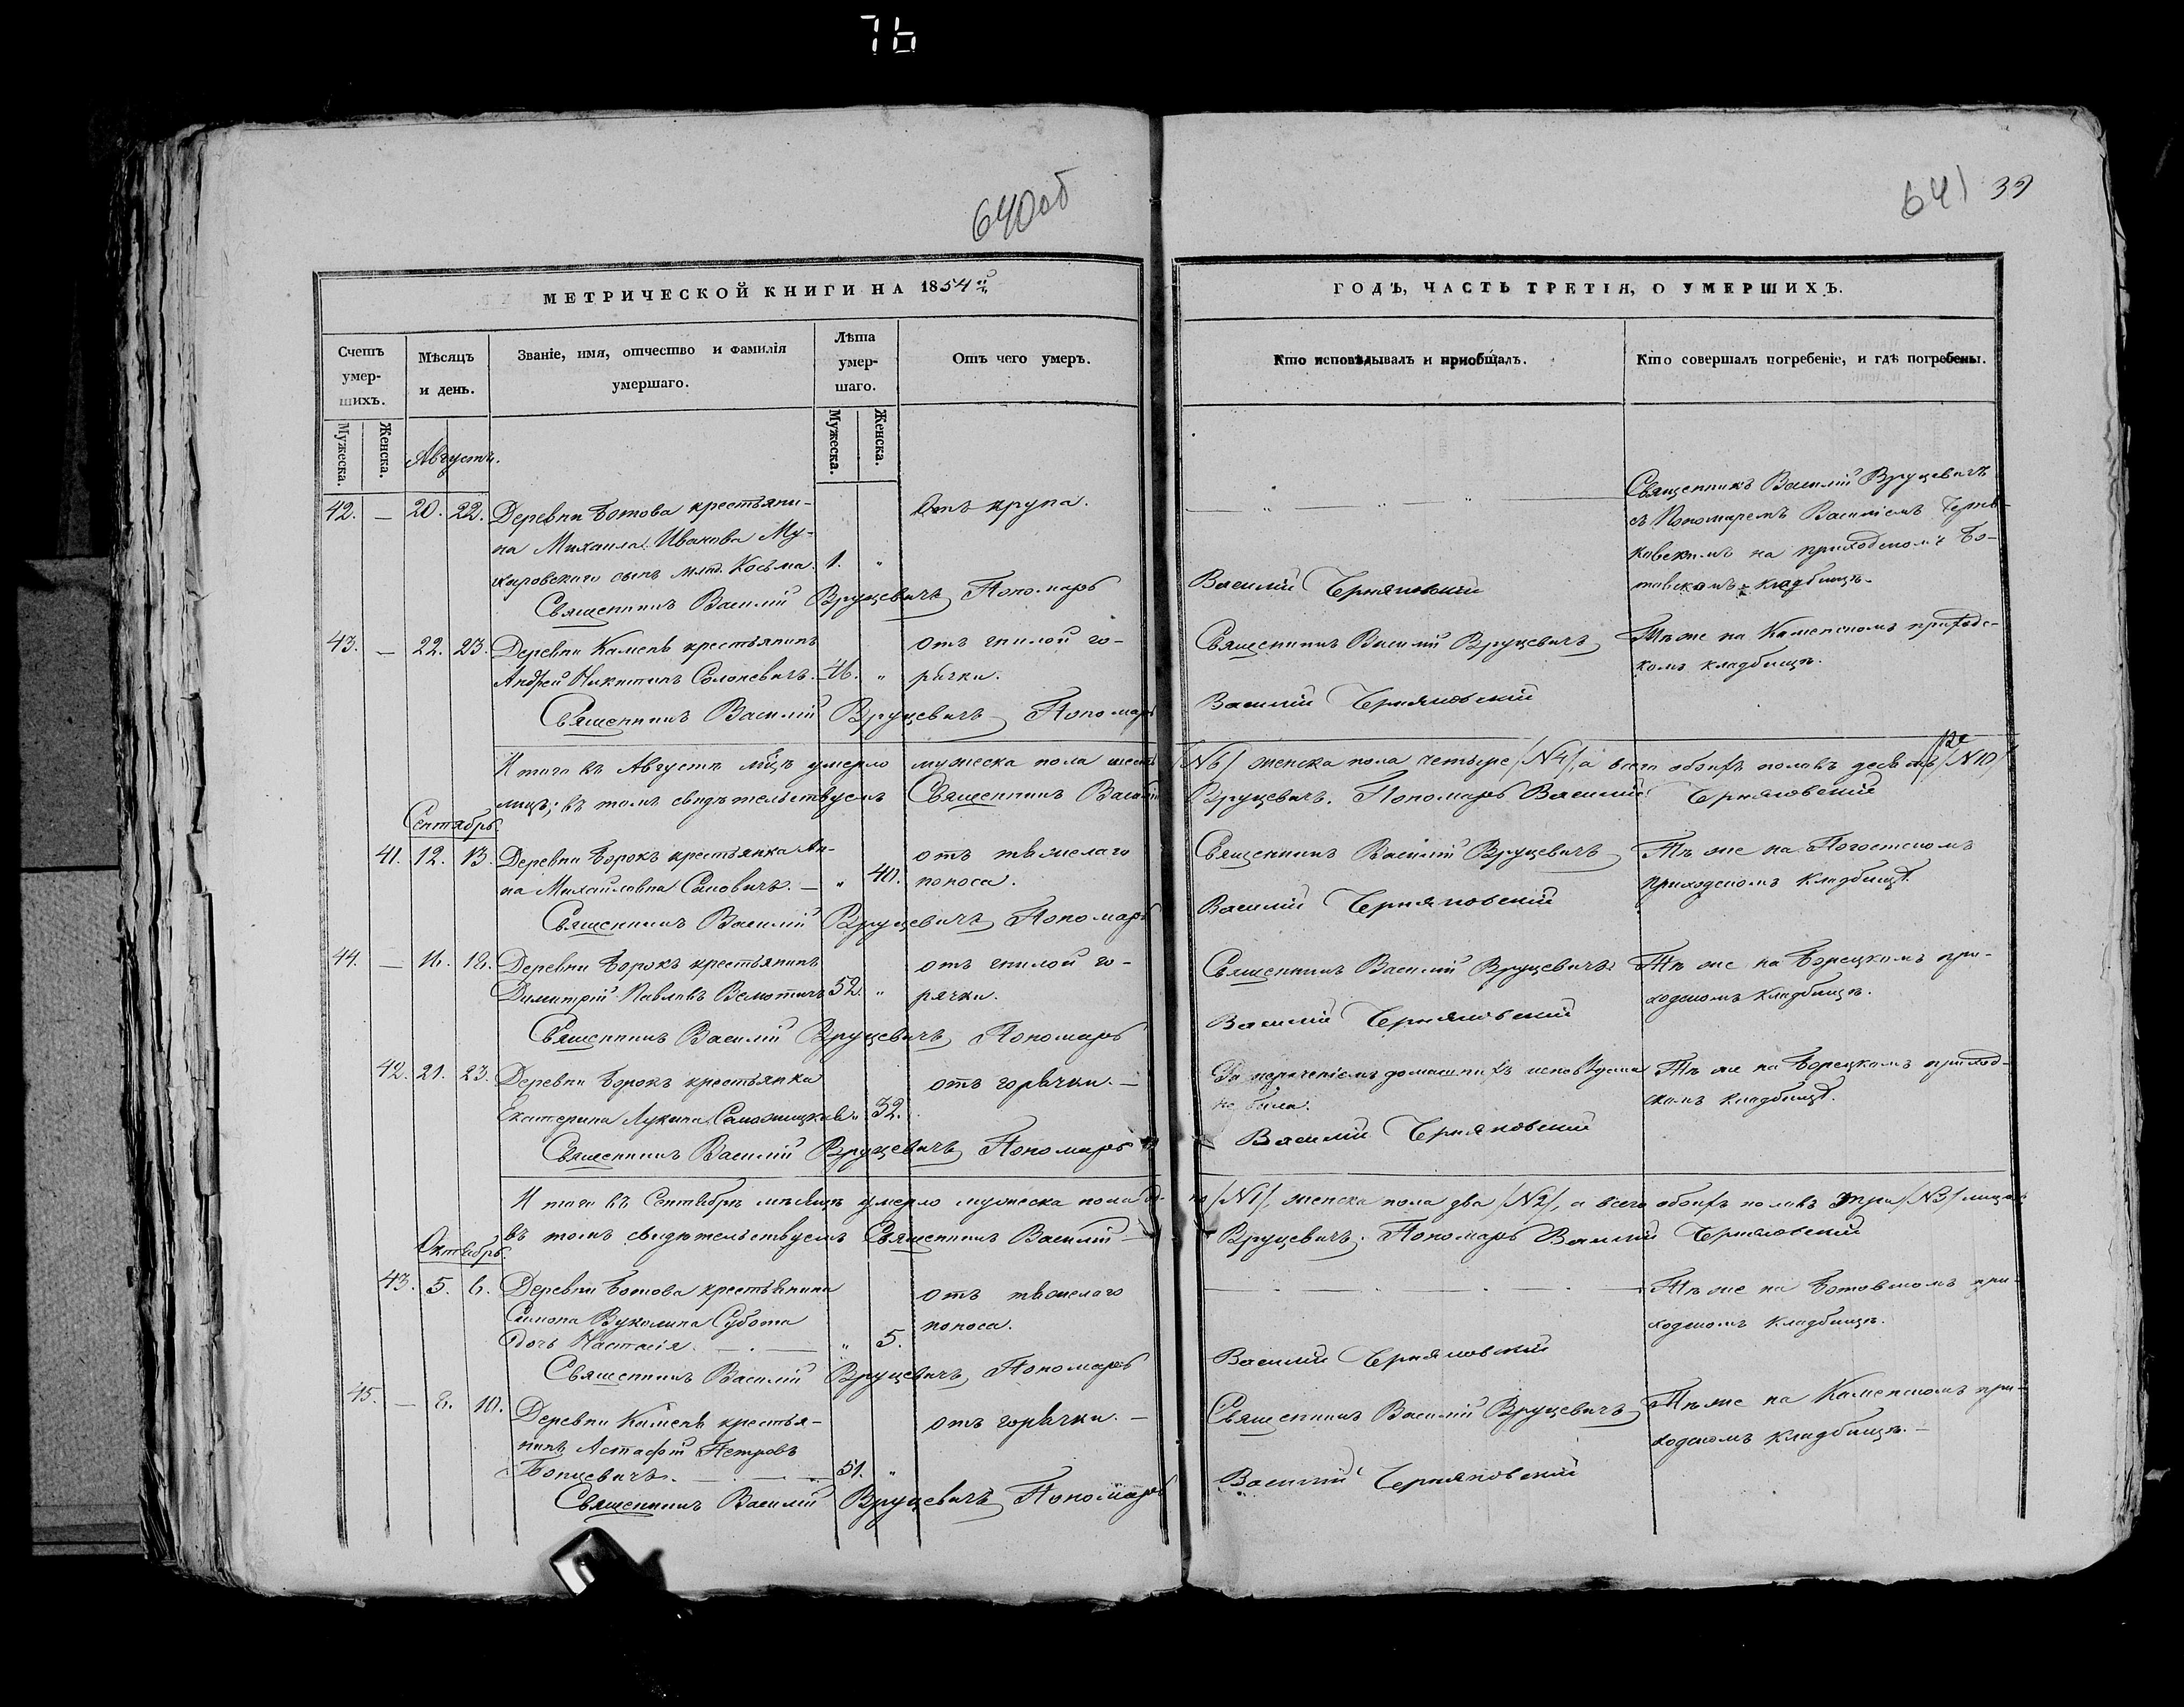 76
640 об
641 39
МЕТРИЧЕСКОЙ КНИГИ НА 1854й
ГОДЪ, ЧАСТЬ ТРЕТІЯ, О УМЕРШИХЪ.
Счетъ умер-
шихъ.
Мѣсяцъ
и день.
Званіе, имя, отчество и фамилія
умершаго.
Лѣта
умер-
шаго.
Отъ чего умеръ.
Кто исповѣдывалъ и приобщалъ.
Кто совершалъ погребеніе, и гдѣ погребены.
Мужеска. Женска.
Мужеска. Женска.
Августъ.
42. — 20. 22. Деревни Ботова крестьяни-
на Михаила Иванова
сынъ млад. Козьма. 1. "
Отъ крупа.
Священникъ Василій Вруцевичъ
съ Пономаремъ Василіемъ Черня-
ковскимъ на приходскомъ Бо-
товскомъ кладбищѣ.
Священникъ Василій Вруцевичъ Пономарь Василій Черняковскій
43. — 22. 23. Деревни Камень крестьянинъ
Андрей Никитинъ Солоневичъ. 46. "
отъ гнилой го-
рячки.
Священникъ Василій Вруцевичъ
Тѣ же на Каменскомъ приходс-
комъ кладбищѣ.
Священникъ Василій Вруцевичъ Пономарь Василій Черняковскій
Итого въ Августѣ мѣцѣ умерло мужеска пола шесть /№6/ женска пола четыре /№4/, а всего обоихъ половъ десять /№10/
лицъ; въ томъ свидѣтельствуемъ Священникъ Василій Вруцевичъ. Пономарь Василій Черняковскій
Сентябрь.
41. 12. 13. Деревни Борокъ крестьянка Ан-
на Михайловна — " 40.
отъ тяжелаго
поноса.
Священникъ Василій Вруцевичъ
Тѣ же на Погостскомъ
приходскомъ кладбищѣ.
Священникъ Василій Вруцевичъ Пономарь Василій Черняковскій
44. — 16. 18. Деревни Борокъ крестьянинъ
Димитрій Павловъ 52. "
отъ гнилой го-
рячки.
Священникъ Василій Вруцевичъ
Тѣ же на Борецкомъ при-
ходскомъ кладбищѣ.
Священникъ Василій Вруцевичъ Пономарь Василій Черняковскій
42. 21. 23. Деревни Борокъ крестьянка
Екатерина Лукина 32.
отъ горячки. —
За нераченіемъ домашнихъ исповѣдана
не была.
Тѣ же на Борецкомъ приход-
скомъ кладбищѣ.
Священникъ Василій Вруцевичъ Пономарь Василій Черняковскій
Итого въ Сентябрѣ мѣсяцѣ умерло мужеска пола од-
но /№1/, женска пола два /№2/, а всего обоихъ половъ три /№3/ лица
въ томъ свидѣтельствуемъ Священникъ Василій Вруцевичъ. Пономарь Василій Черняковскій
Октябрь.
43. 5. 6. Деревни Ботова крестьянина
Симона Вуколина Субота
дочь Настасія. — . — " 5.
отъ тяжелаго
поноса.
Тѣ же на Ботовскомъ при-
ходскомъ кладбищѣ.
Священникъ Василій Вруцевичъ Пономарь Василій Черняковскій
45. — 8. 10. Деревни Камень крестья-
нинъ Астафій Петровъ
51. "
отъ горячки. —
Священникъ Василій Вруцевичъ
Тѣ же на Каменскомъ при-
ходскомъ кладбищѣ. —
Священникъ Василій Вруцевичъ Пономарь Василій Черняковскій